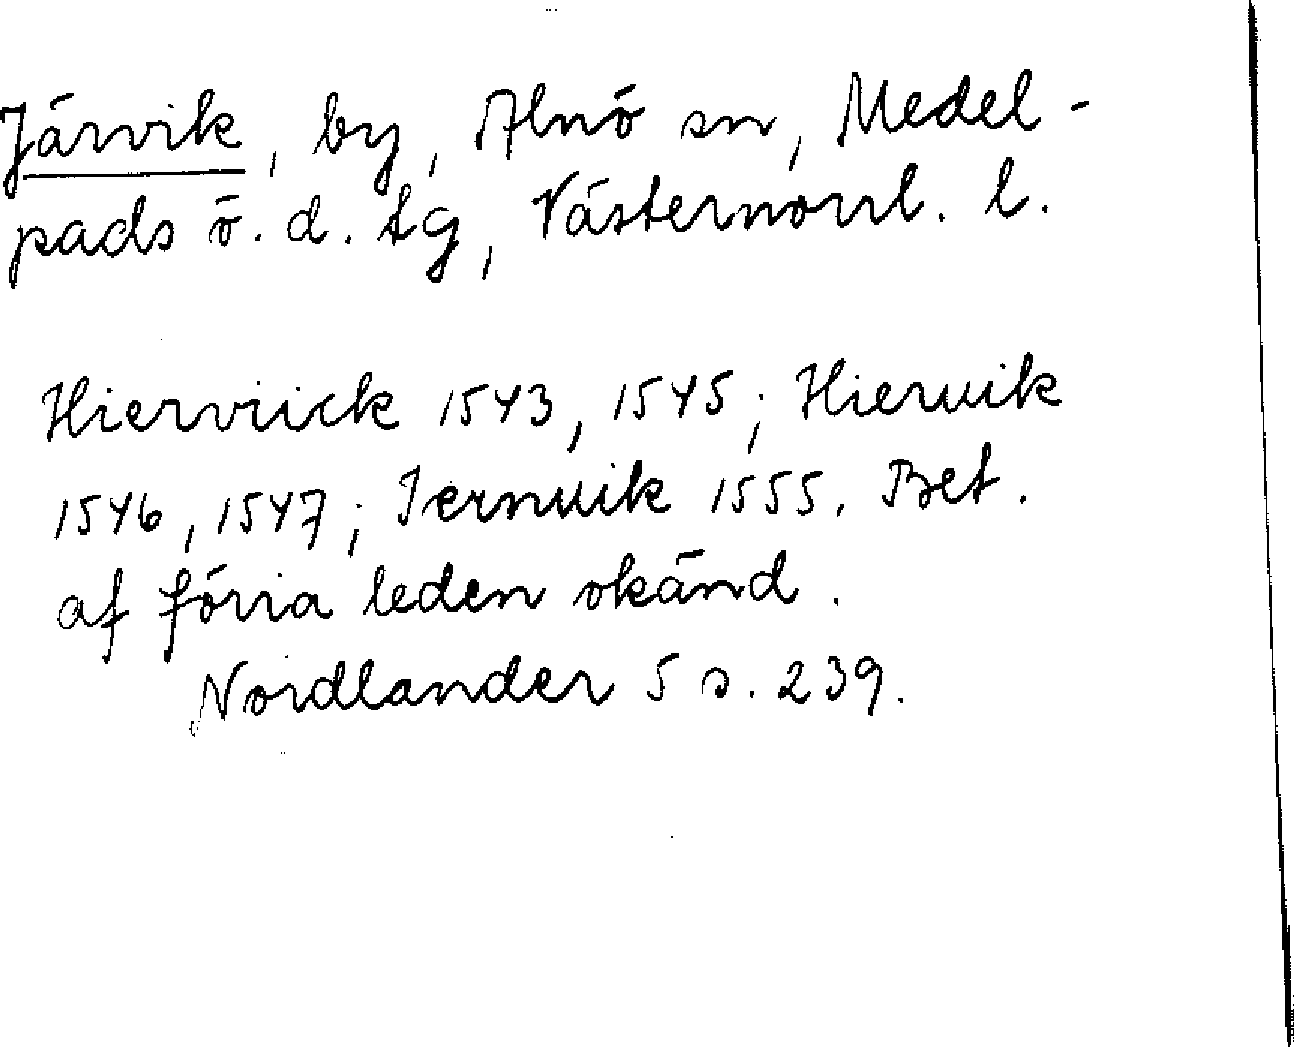 Järvik, by, Alnö sn, Medel-
pads ö. d. tg, Västernorrl. l.
Hierviick 1543, 1545; Hieruik
1546, 1547; Iernuik 1555. Bet.
af förra leden okänd.
Nordlander 5 s. 239.